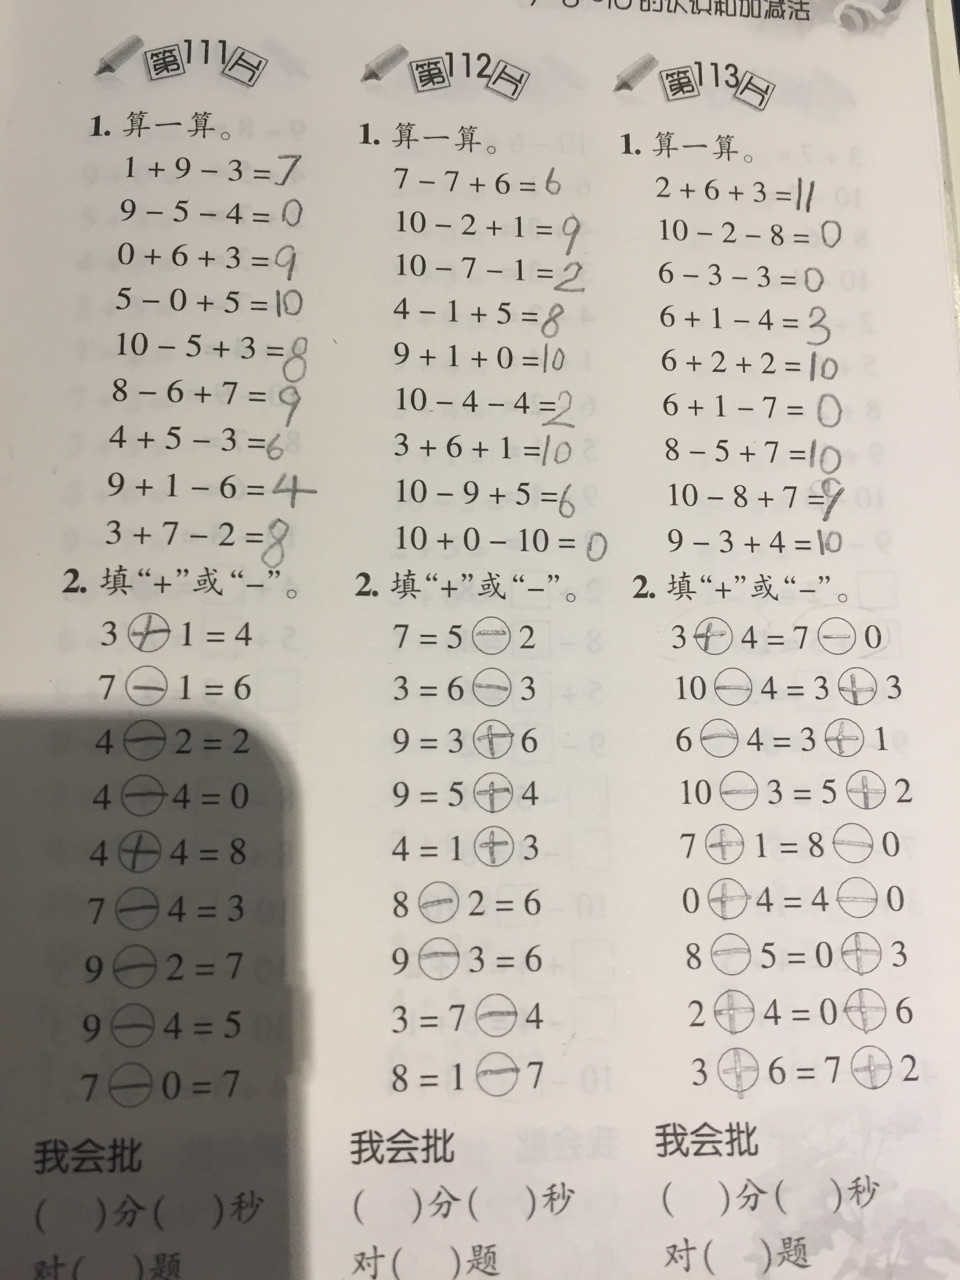 的认识和加减法
第111天
1. 算一算。
1 + 9 − 3 = 7
9 − 5 − 4 = 0
0 + 6 + 3 = 9
5 − 0 + 5 = 10
10 − 5 + 3 = 8
8 − 6 + 7 = 9
4 + 5 − 3 = 6
9 + 1 − 6 = 4
3 + 7 − 2 = 8
2. 填“+”或“−”。
3 + 1 = 4
7 − 1 = 6
4 − 2 = 2
4 − 4 = 0
4 + 4 = 8
7 − 4 = 3
9 − 2 = 7
9 − 4 = 5
7 − 0 = 7
我会批
( )分( )秒
对( )题
第112天
1. 算一算。
7 − 7 + 6 = 6
10 − 2 + 1 = 9
10 − 7 − 1 = 2
4 − 1 + 5 = 8
9 + 1 + 0 = 10
10 − 4 − 4 = 2
3 + 6 + 1 = 10
10 − 9 + 5 = 6
10 + 0 − 10 = 0
2. 填“+”或“−”。
7 = 5 − 2
3 = 6 − 3
9 = 3 + 6
9 = 5 + 4
4 = 1 + 3
8 − 2 = 6
9 − 3 = 6
3 = 7 − 4
8 = 1 − 7
我会批
( )分( )秒
对( )题
第113天
1. 算一算。
2 + 6 + 3 = 11
10 − 2 − 8 = 0
6 − 3 − 3 = 0
6 + 1 − 4 = 3
6 + 2 + 2 = 10
6 + 1 − 7 = 0
8 − 5 + 7 = 10
10 − 8 + 7 = 9
9 − 3 + 4 = 10
2. 填“+”或“−”。
3 + 4 = 7 − 0
10 − 4 = 3 + 3
6 − 4 = 3 + 1
10 − 3 = 5 + 2
7 + 1 = 8 − 0
0 + 4 = 4 − 0
8 − 5 = 0 + 3
2 + 4 = 0 + 6
3 + 6 = 7 + 2
我会批
( )分( )秒
对( )题